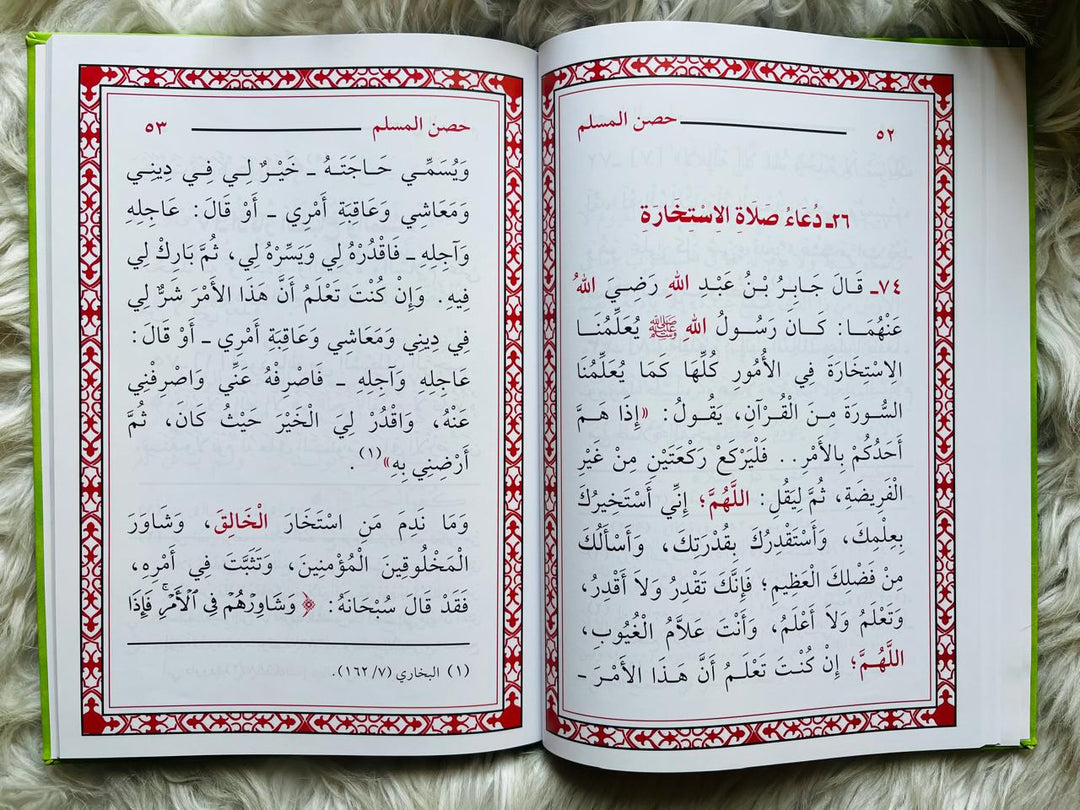 حصن المسلم ٥٢
٢٦ـ دُعَاءُ صَلَاةِ الِاسْتِخَارَةِ
٧٤ـ قَالَ جَابِرُ بْنُ عَبْدِ اللهِ رَضِيَ اللهُ
عَنْهُمَا: كَانَ رَسُولُ اللهِ ﷺ يُعَلِّمُنَا
الِاسْتِخَارَةَ فِي الأُمُورِ كُلِّهَا كَمَا يُعَلِّمُنَا
السُّورَةَ مِنَ الْقُرْآنِ، يَقُولُ: «إِذَا هَمَّ
أَحَدُكُمْ بِالأَمْرِ.. فَلْيَرْكَعْ رَكْعَتَيْنِ مِنْ غَيْرِ
الْفَرِيضَةِ، ثُمَّ لِيَقُلِ: اللَّهُمَّ؛ إِنِّي أَسْتَخِيرُكَ
بِعِلْمِكَ، وَأَسْتَقْدِرُكَ بِقُدْرَتِكَ، وَأَسْأَلُكَ
مِنْ فَضْلِكَ الْعَظِيمِ؛ فَإِنَّكَ تَقْدِرُ وَلَا أَقْدِرُ،
وَتَعْلَمُ وَلَا أَعْلَمُ، وَأَنْتَ عَلَّامُ الْغُيُوبِ،
اللَّهُمَّ؛ إِنْ كُنْتَ تَعْلَمُ أَنَّ هَذَا الأَمْرَ ـ
حصن المسلم ٥٣
وَيُسَمِّي حَاجَتَهُ ـ خَيْرٌ لِي فِي دِينِي
وَمَعَاشِي وَعَاقِبَةِ أَمْرِي ـ أَوْ قَالَ: عَاجِلِهِ
وَآجِلِهِ ـ فَاقْدُرْهُ لِي وَيَسِّرْهُ لِي، ثُمَّ بَارِكْ لِي
فِيهِ. وَإِنْ كُنْتَ تَعْلَمُ أَنَّ هَذَا الأَمْرَ شَرٌّ لِي
فِي دِينِي وَمَعَاشِي وَعَاقِبَةِ أَمْرِي ـ أَوْ قَالَ:
عَاجِلِهِ وَآجِلِهِ ـ فَاصْرِفْهُ عَنِّي وَاصْرِفْنِي
عَنْهُ، وَاقْدُرْ لِيَ الْخَيْرَ حَيْثُ كَانَ، ثُمَّ
أَرْضِنِي بِهِ»(١).
وَمَا نَدِمَ مَنِ اسْتَخَارَ الْخَالِقَ، وَشَاوَرَ
الْمَخْلُوقِينَ الْمُؤْمِنِينَ، وَتَثَبَّتَ فِي أَمْرِهِ،
فَقَدْ قَالَ سُبْحَانَهُ: ﴿وَشَاوِرْهُمْ فِي الْأَمْرِ ۖ فَإِذَا
(١) البخاري (٧/ ١٦٢).